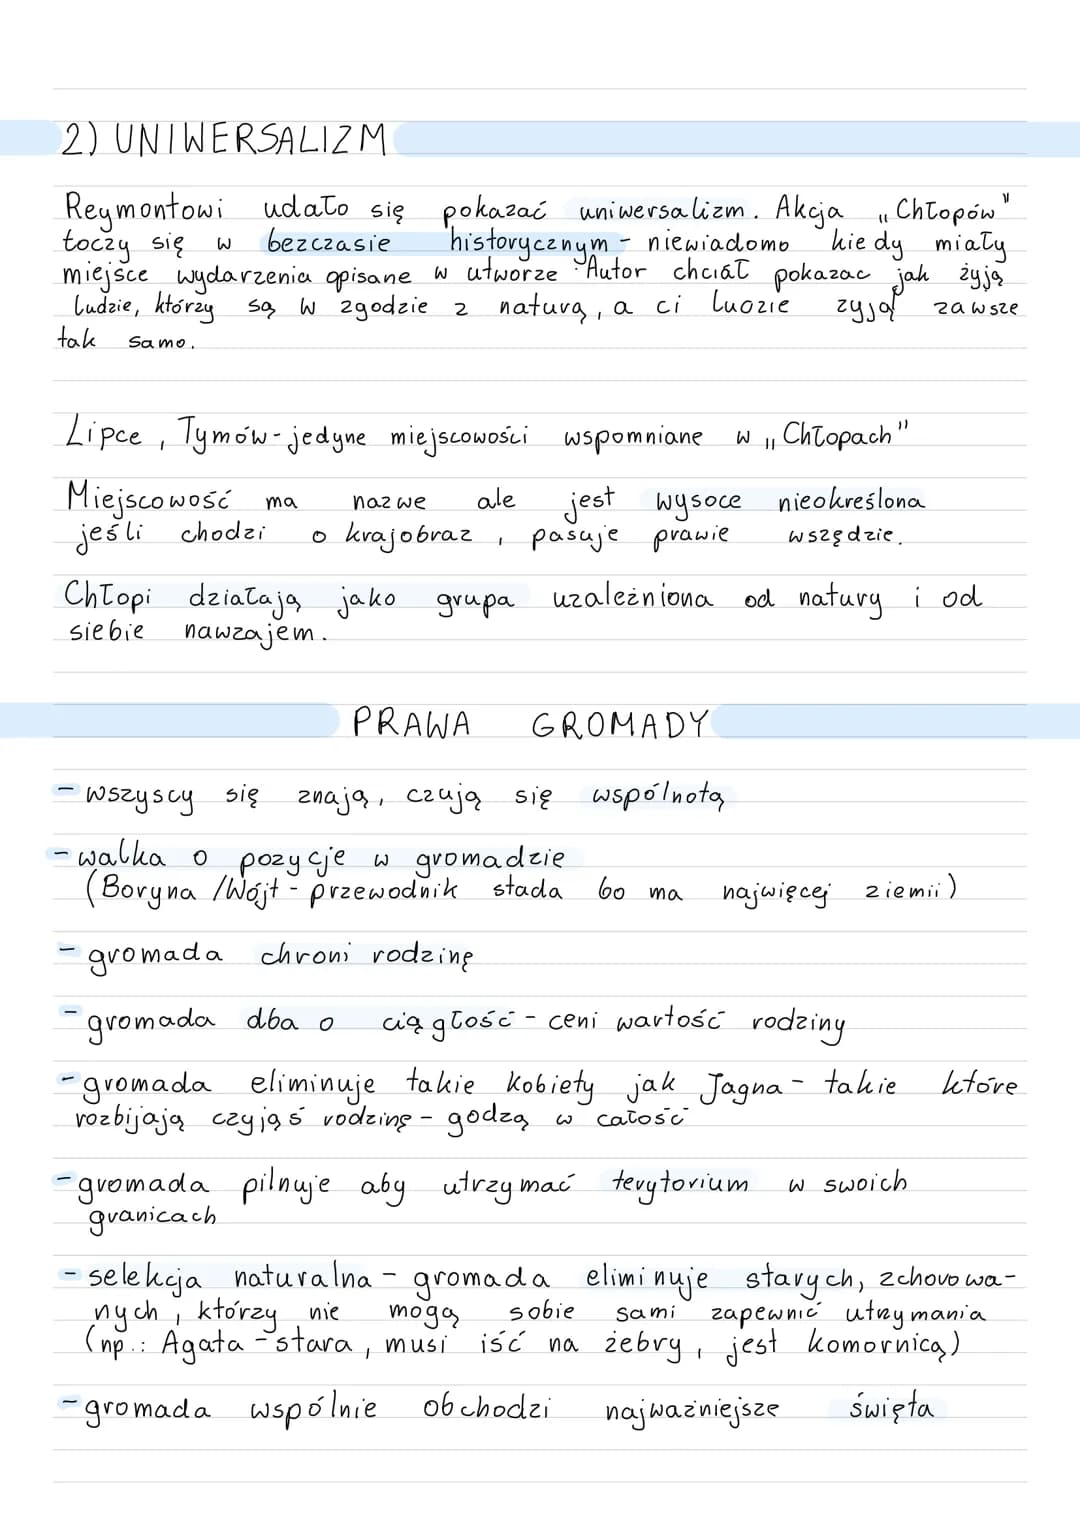 2) UNIWERSALIZM
Reymontowi udało się pokazać uniwersalizm. Akcja „Chłopów"
toczy się w bezczasie historycznym - niewiadomo kiedy miały
miejsce wydarzenia opisane w utworze. Autor chciał pokazac jak żyją
ludzie, którzy są w zgodzie z naturą, a ci ludzie żyją zawsze
tak samo.
Lipce, Tymów - jedyne miejscowości wspomniane w „Chłopach"
Miejscowość ma nazwe ale jest wysoce nieokreślona
jeśli chodzi o krajobraz, pasuje prawie wszędzie.
Chłopi działają jako grupa uzależniona od natury i od
siebie nawzajem.
PRAWA GROMADY
- wszyscy się znają, czują się wspólnotą
- walka o pozycje w gromadzie
(Boryna /Wójt - przewodnik stada bo ma najwięcej ziemii)
- gromada chroni rodzinę
- gromada dba o ciągłość - ceni wartość rodziny
- gromada eliminuje takie kobiety jak Jagna - takie które
rozbijają czyjąś rodzinę - godzą w całość
- gromada pilnuje aby utrzymać terytorium w swoich
granicach
- selekcja naturalna - gromada eliminuje starych, zchorowa-
nych, którzy nie mogą sobie sami zapewnić utrzymania
(np.: Agata - stara, musi iść na żebry, jest komornicą)
- gromada wspólnie obchodzi najważniejsze święta